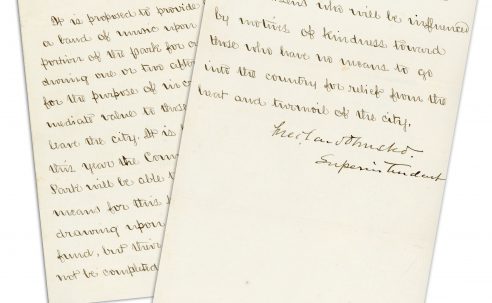 It is proposed to provide
a band of music upon
portion of the park for
during one or two
for the purpose of
mediate value to those
leave the city. It is
this year the Com
Park will be able t
means for this
drawing upon
fund, but their
not be completed
who will be influenced
by motives of kindness toward
those who have no means to go
into the country for relief from the
heat and turmoil of the city.
Fred. Law Olmsted.
Superintendent